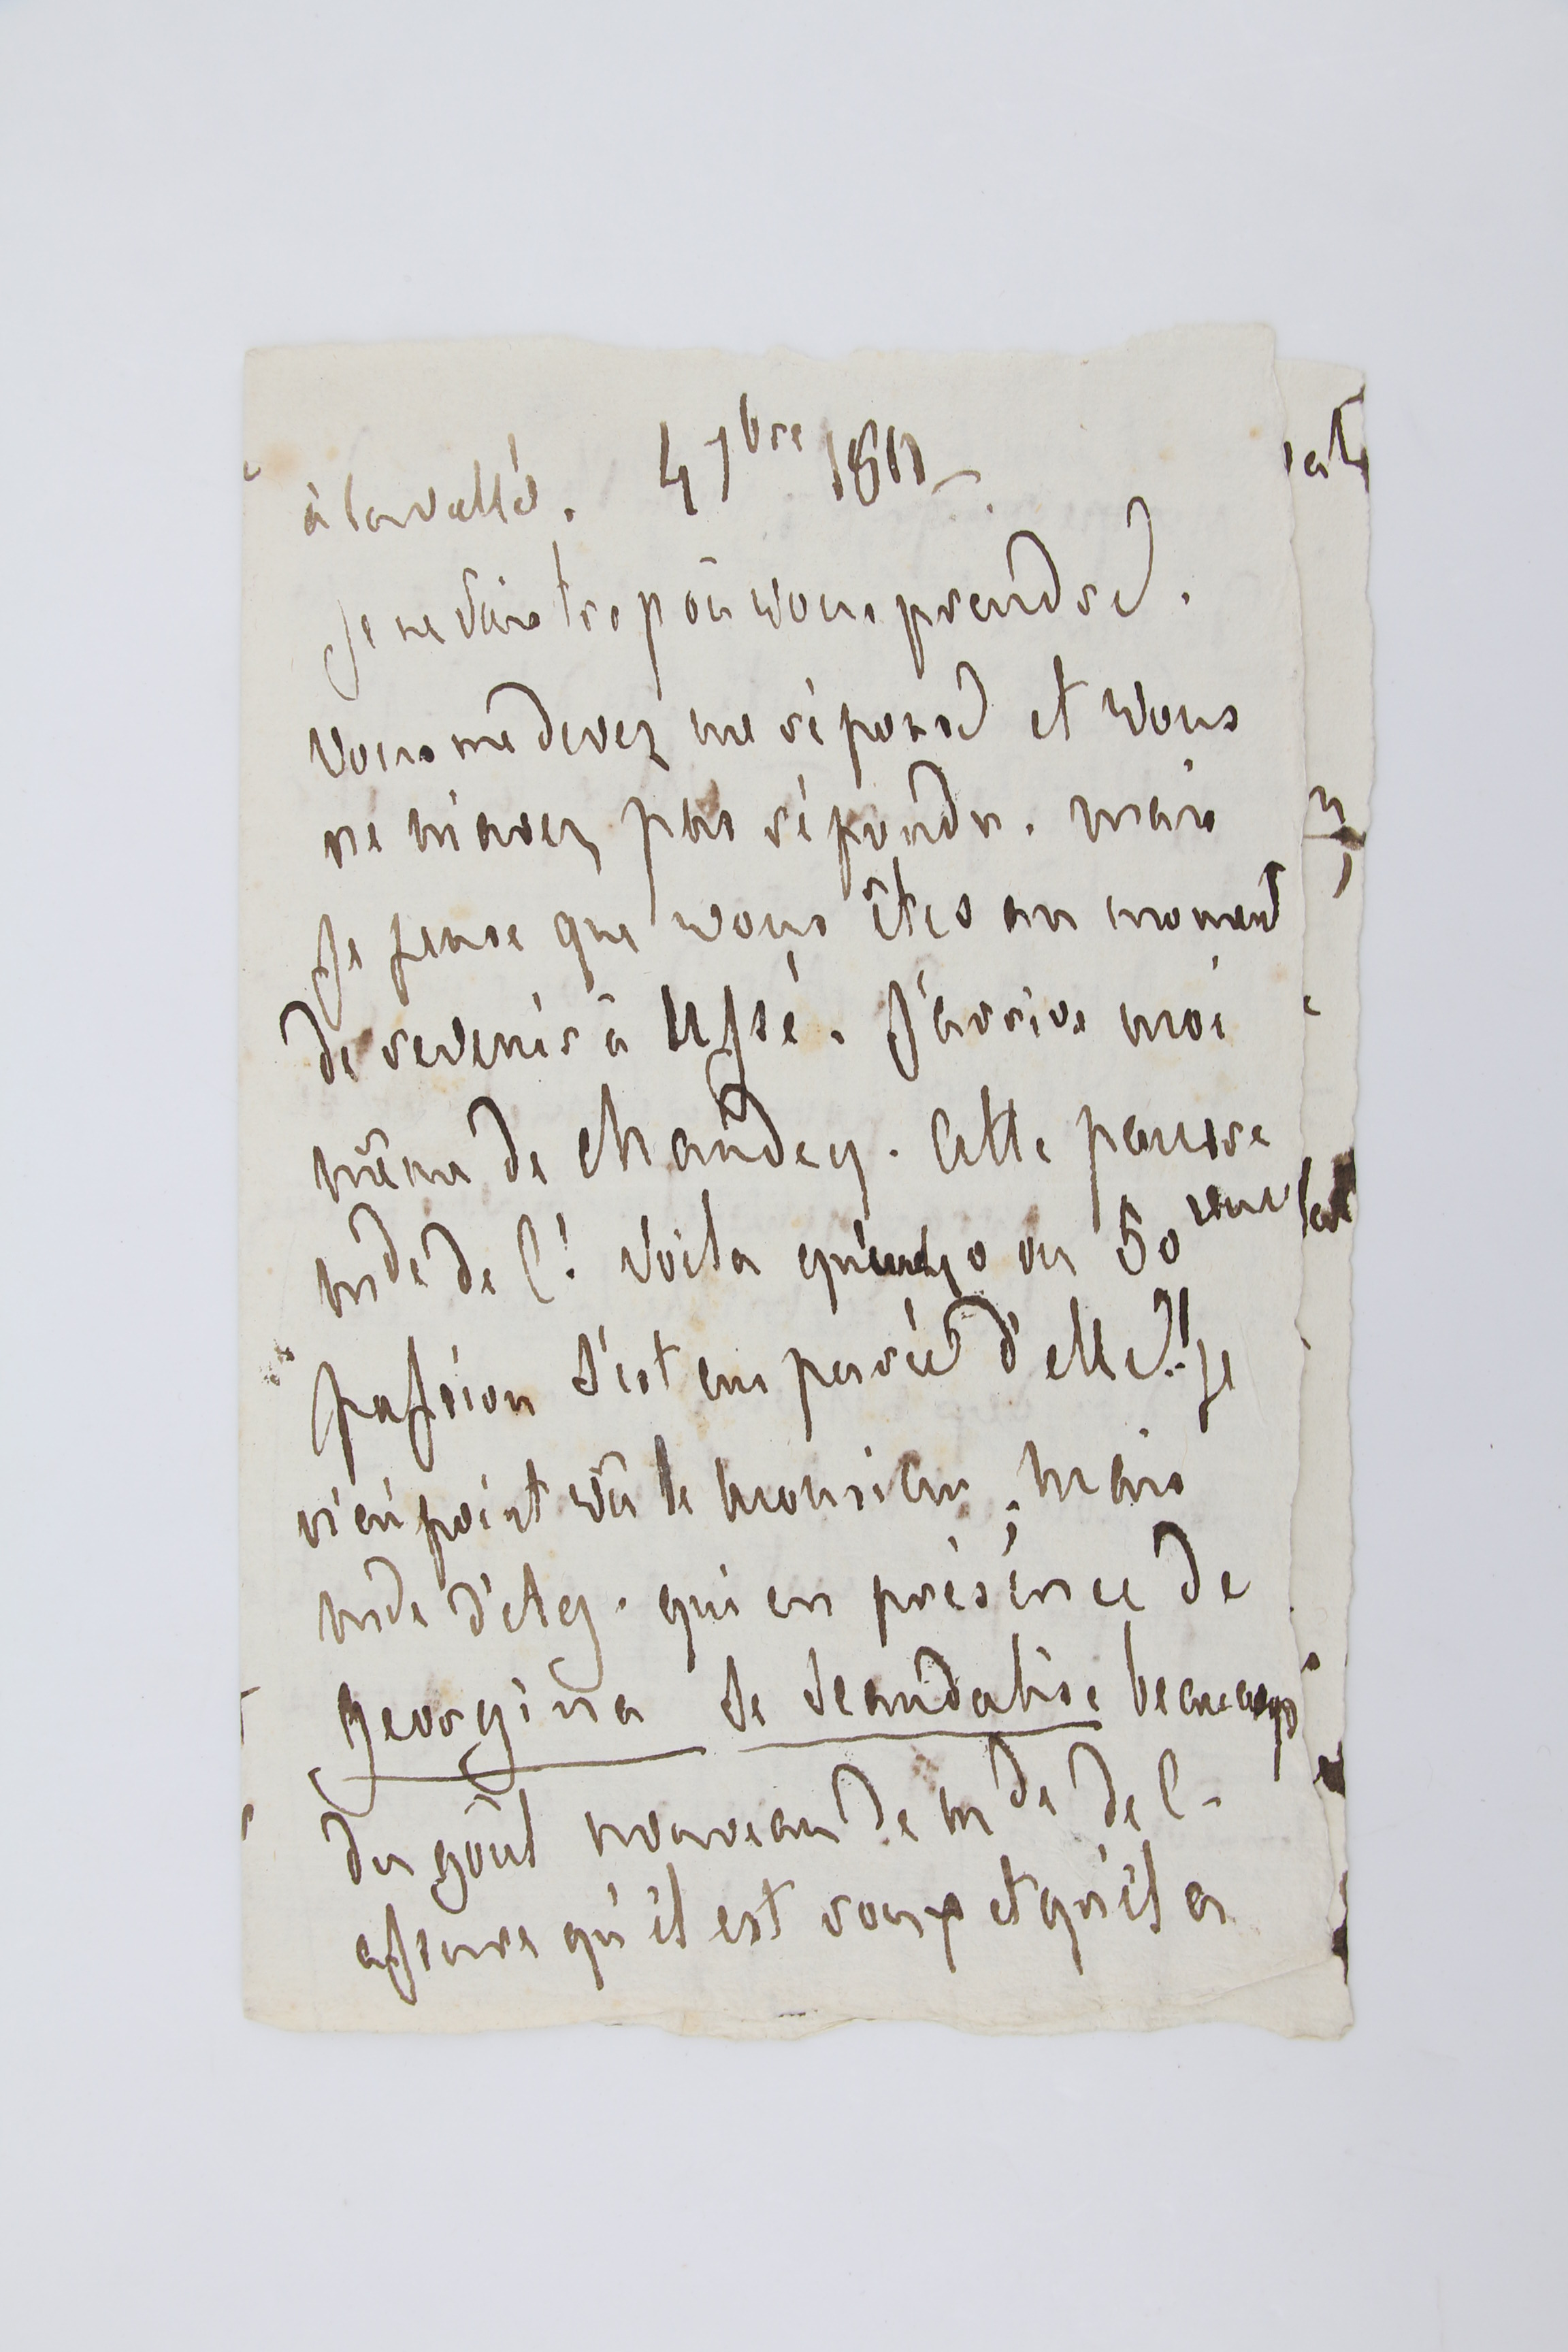 à la vallée. 4 7bre 1811
Je ne sais trop où vous prendre.
Vous me devez une réponse et vous
ne m'avez pas répondu. mais
Je pense que vous êtes au moment
de revenir à Ussé. J'arrive moi
même de Chandey. Cette pauvre
mde de C! Voilà qu'une 50eme
passion s'est emparée d'elle! Je
n'ai point vu le monsieur; mais
mde d'Ag. qui en présence de
georgina se scandalise beaucoup
du goût nouveau de mde de C.
assure qu'il est roux et qu'il a